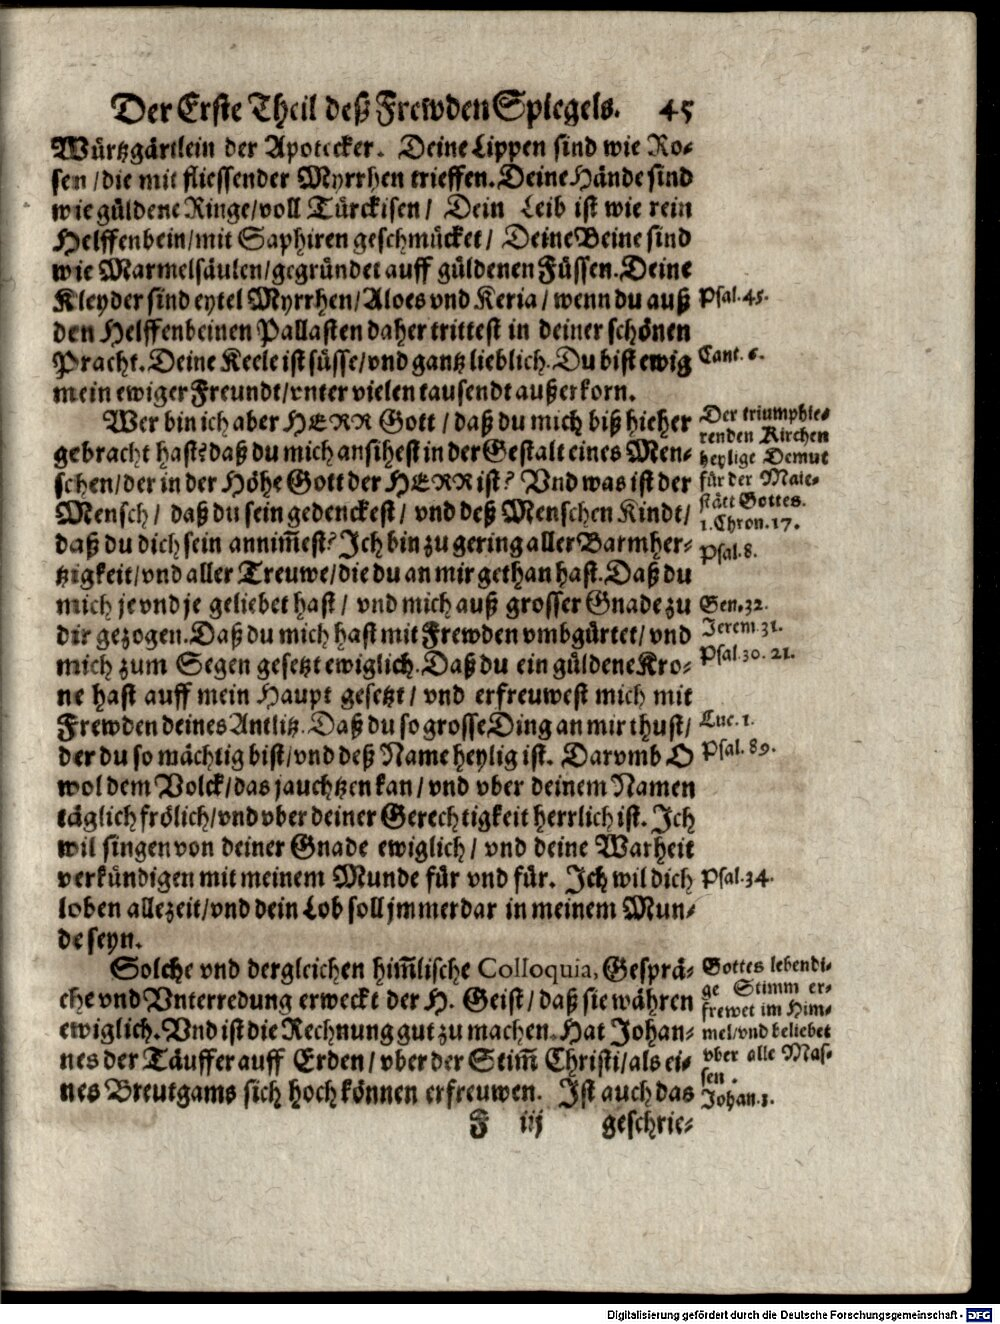 Der Erste Theil deß Frewden Spiegels. 45
Würtzgärtlein der Apotecker. Deine Lippen sind wie Ro-
sen / die mit fliessender Myrrhen trieffen. Deine Hände sind
wie güldene Ringe / voll Türckisen / Dein Leib ist wie rein
Helffenbein / mit Saphiren geschmücket / Deine Beine sind
wie Marmelsäulen / gegründet auff güldenen Füssen. Deine
Kleyder sind eytel Myrrhen / Aloes vnd Keria / wenn du auß
Psal. 45.
den Helffenbeinen Pallasten daher trittest in deiner schönen
Pracht. Deine Keele ist süsse / vnd gantz lieblich. Du bist ewig
Cant. 6.
mein ewiger Freundt / vnter vielen tausendt außerkorn.
Wer bin ich aber HERR Gott / daß du mich biß hieher
gebracht hast? daß du mich ansihest in der Gestalt eines Men-
schen / der in der Höhe Gott der HERR ist? Vnd was ist der
Mensch / daß du sein gedenckest / vnd deß Menschen Kindt /
daß du dich sein annim̃est? Ich bin zu gering aller Barmher-
Der triumphie-
renden Kirchen
heylige Demut
für der Maie-
stätt Gottes.
1. Chron. 17.
Psal. 8.
tzigkeit / vnd aller Treuwe / die du an mir gethan hast. Daß du
mich je vnd je geliebet hast / vnd mich auß grosser Gnade zu
Gen. 32.
dir gezogen. Daß du mich hast mit Frewden vmbgürtet / vnd
Jerem. 31.
mich zum Segen gesetzt ewiglich. Daß du ein güldene Kro-
Psal. 30. 21.
ne hast auff mein Haupt gesetzt / vnd erfreuwest mich mit
Frewden deines Antlitz. Daß du so grosse Ding an mir thust /
Luc. 1.
der du so mächtig bist / vnd deß Name heylig ist. Darvmb O
Psal. 89.
wol dem Volck / das jauchtzen kan / vnd vber deinem Namen
täglich frölich / vnd vber deiner Gerechtigkeit herrlich ist. Ich
wil singen von deiner Gnade ewiglich / vnd deine Warheit
verkündigen mit meinem Munde für vnd für. Ich wil dich
Psal. 34.
loben allezeit / vnd dein Lob soll jmmerdar in meinem Mun-
de seyn.
Solche vnd dergleichen him̃lische Colloquia, Gesprä-
che vnd Vnterredung erweckt der H. Geist / daß sie währen
ewiglich. Vnd ist die Rechnung gut zu machen. Hat Johan-
nes der Täuffer auff Erden / vber der Stim̃ Christi / als ei-
nes Breutgams sich hoch können erfreuwen. Ist auch das
Gottes lebendi-
ge Stimm er-
frewet im Him-
mel / vnd beliebet
vber alle Mas-
sen.
Johan. 3.
F iij geschrie-
Digitalisierung gefördert durch die Deutsche Forschungsgemeinschaft - DFG